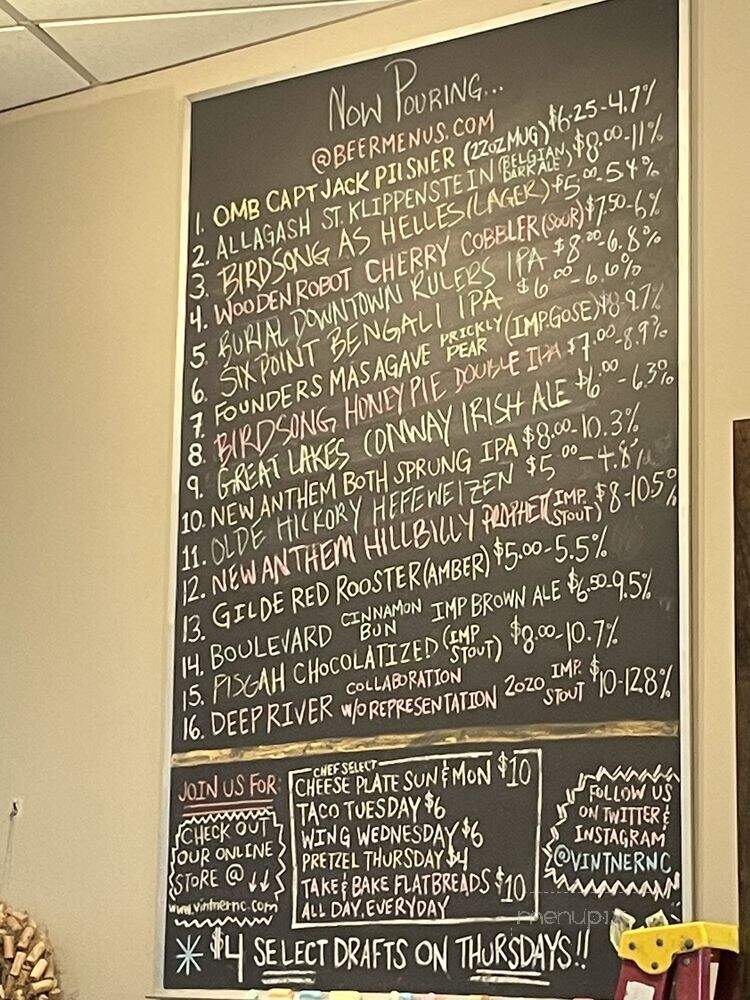 NOW POURING...
@BEERMENUS.COM
1. OMB CAPT JACK PILSNER (22OZ MUG) $6.25-4.7%
2. ALLAGASH ST. KLIPPENSTEIN (BELGIAN DARK ALE) $8.00-11%
3. BIRDSONG AS HELLES (LAGER) $5.00-5.4%
4. WOODEN ROBOT CHERRY COBBLER (SOUR) $7.50-6%
5. BURIAL DOWNTOWN RULERS IPA $8.00-6.8%
6. SIXPOINT BENGALI IPA $6.00-6.6%
7. FOUNDERS MAS AGAVE PRICKLY PEAR (IMP. GOSE) $8-9.7%
8. BIRDSONG HONEY PIE DOUBLE IPA $7.00-8.9%
9. GREAT LAKES CONWAY IRISH ALE $6.00-6.3%
10. NEW ANTHEM BOTH SPRUNG IPA $8.00-10.3%
11. OLDE HICKORY HEFEWEIZEN $5.00-4.8%
12. NEW ANTHEM HILLBILLY PROPHET (IMP. STOUT) $8-10.5%
13. GILDE RED ROOSTER (AMBER) $5.00-5.5%
14. BOULEVARD CINNAMON BUN IMP BROWN ALE $6.50-9.5%
15. PISGAH CHOCOLATIZED (IMP STOUT) $8.00-10.7%
16. DEEP RIVER COLLABORATION W/O REPRESENTATION 2020 IMP. STOUT $10-12.8%
JOIN US FOR
CHECK OUT
OUR ONLINE
STORE @ ↓↓
www.vintnernc.com
CHEF SELECT
CHEESE PLATE SUN & MON $10
TACO TUESDAY $6
WING WEDNESDAY $6
PRETZEL THURSDAY $4
TAKE & BAKE FLATBREADS $10
ALL DAY, EVERYDAY
FOLLOW US
ON TWITTER &
INSTAGRAM
@VINTNERNC
* $4 SELECT DRAFTS ON THURSDAYS!!